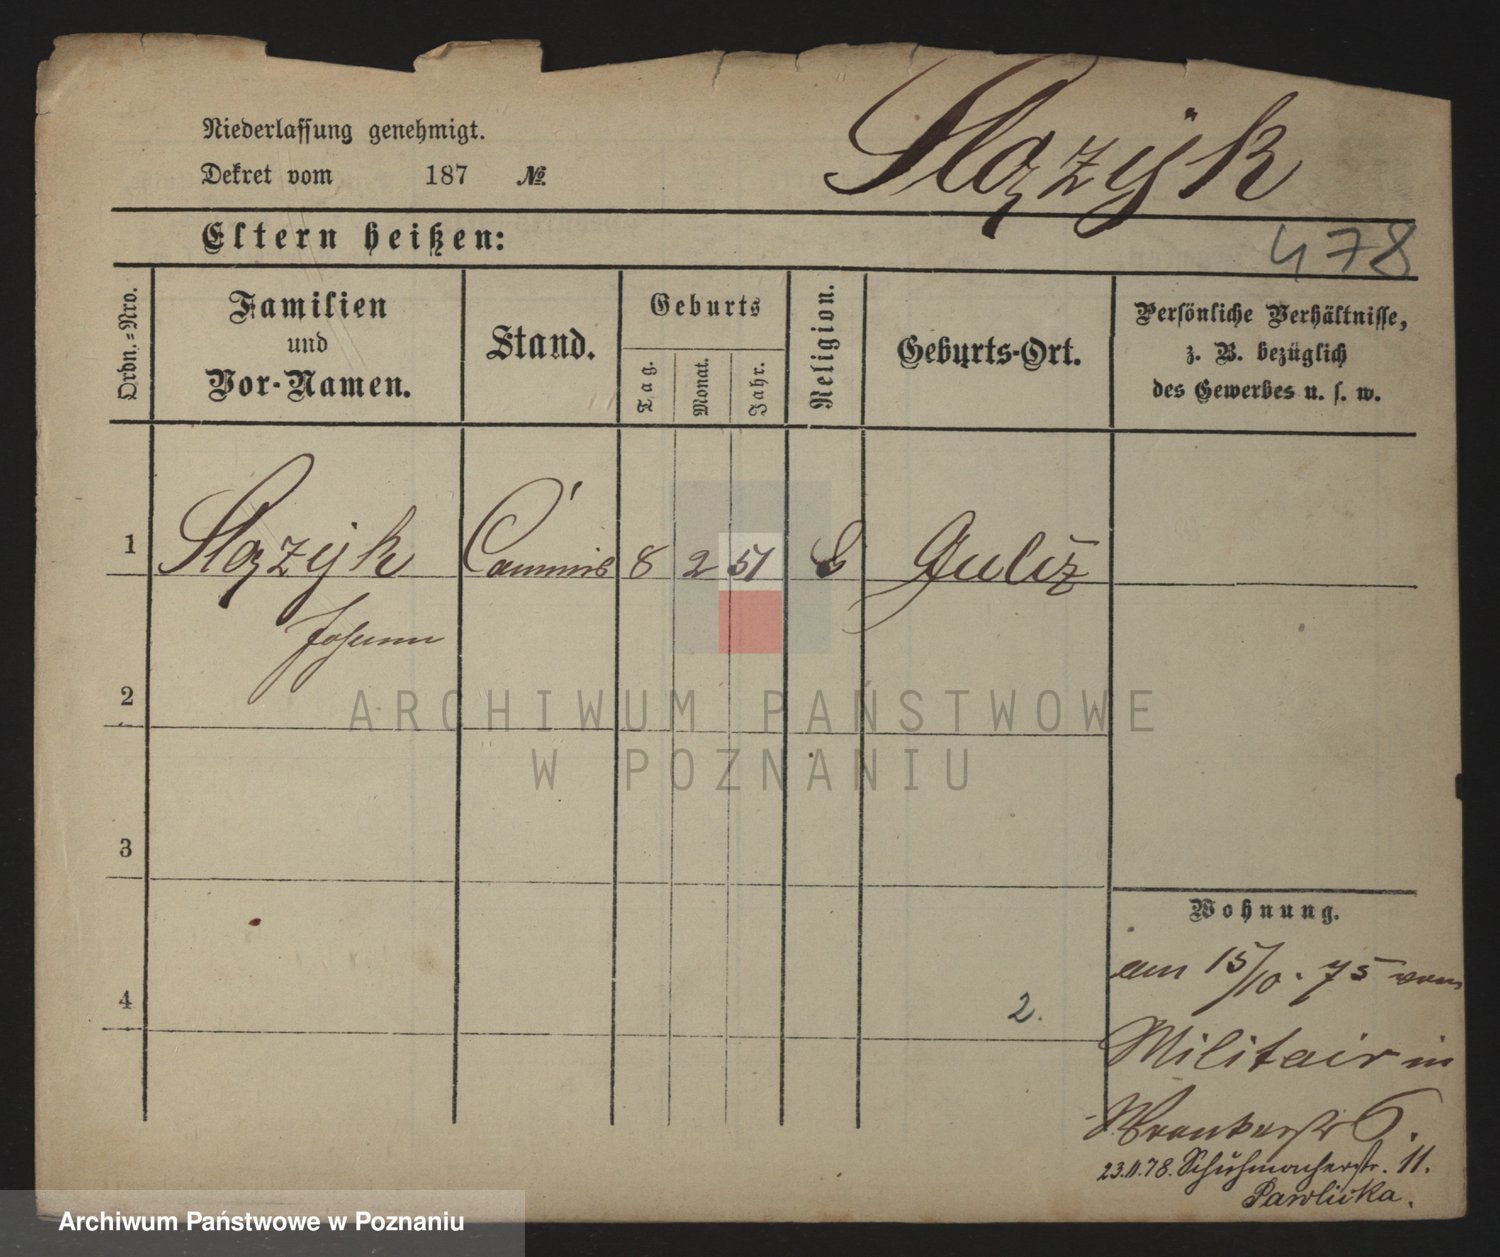 Niederlassung genehmigt.
Dekret vom 187 №
Slązyk
478
Eltern heißen:
Ordn.=Nro.
Familien
und
Vor-Namen.
Stand.
Geburts
Tag.
Monat.
Jahr.
Religion.
Geburts-Ort.
Persönliche Verhältnisse,
z. B. bezüglich
des Gewerbes u. s. w.
1 Slązyk Commis 8 2 51 Gulcz
Johann
2
3
4
2.
Wohnung.
am 15/10. 75 vom
Militair in
Wronkerstr 6.
23.11.78. Schuhmacherstr. 11.
Pawlicka.
ARCHIWUM PAŃSTWOWE
W POZNANIU
Archiwum Państwowe w Poznaniu